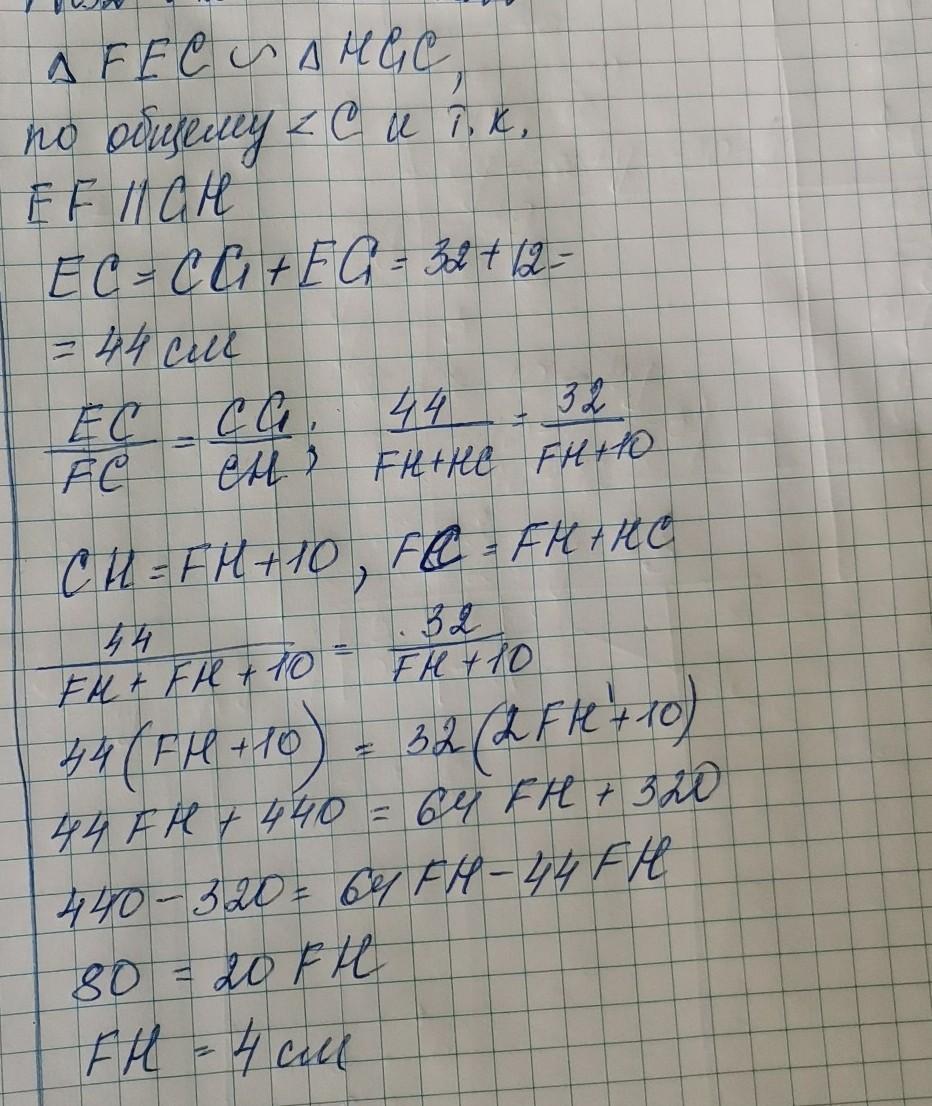 Δ FEC ∽ Δ HGC,
по общему < C и т.к.
EF || GH
EC = CG + EG = 32 + 12 =
= 44 см
EC/FC = CG/CH; 44/FH+HC = 32/FH+10
CH = FH + 10, FC = FH + HC
44/FH + FH + 10 = 32/FH + 10
44(FH + 10) = 32(2FH + 10)
44FH + 440 = 64 FH + 320
440 - 320 = 64 FH - 44 FH
80 = 20 FH
FH = 4 см